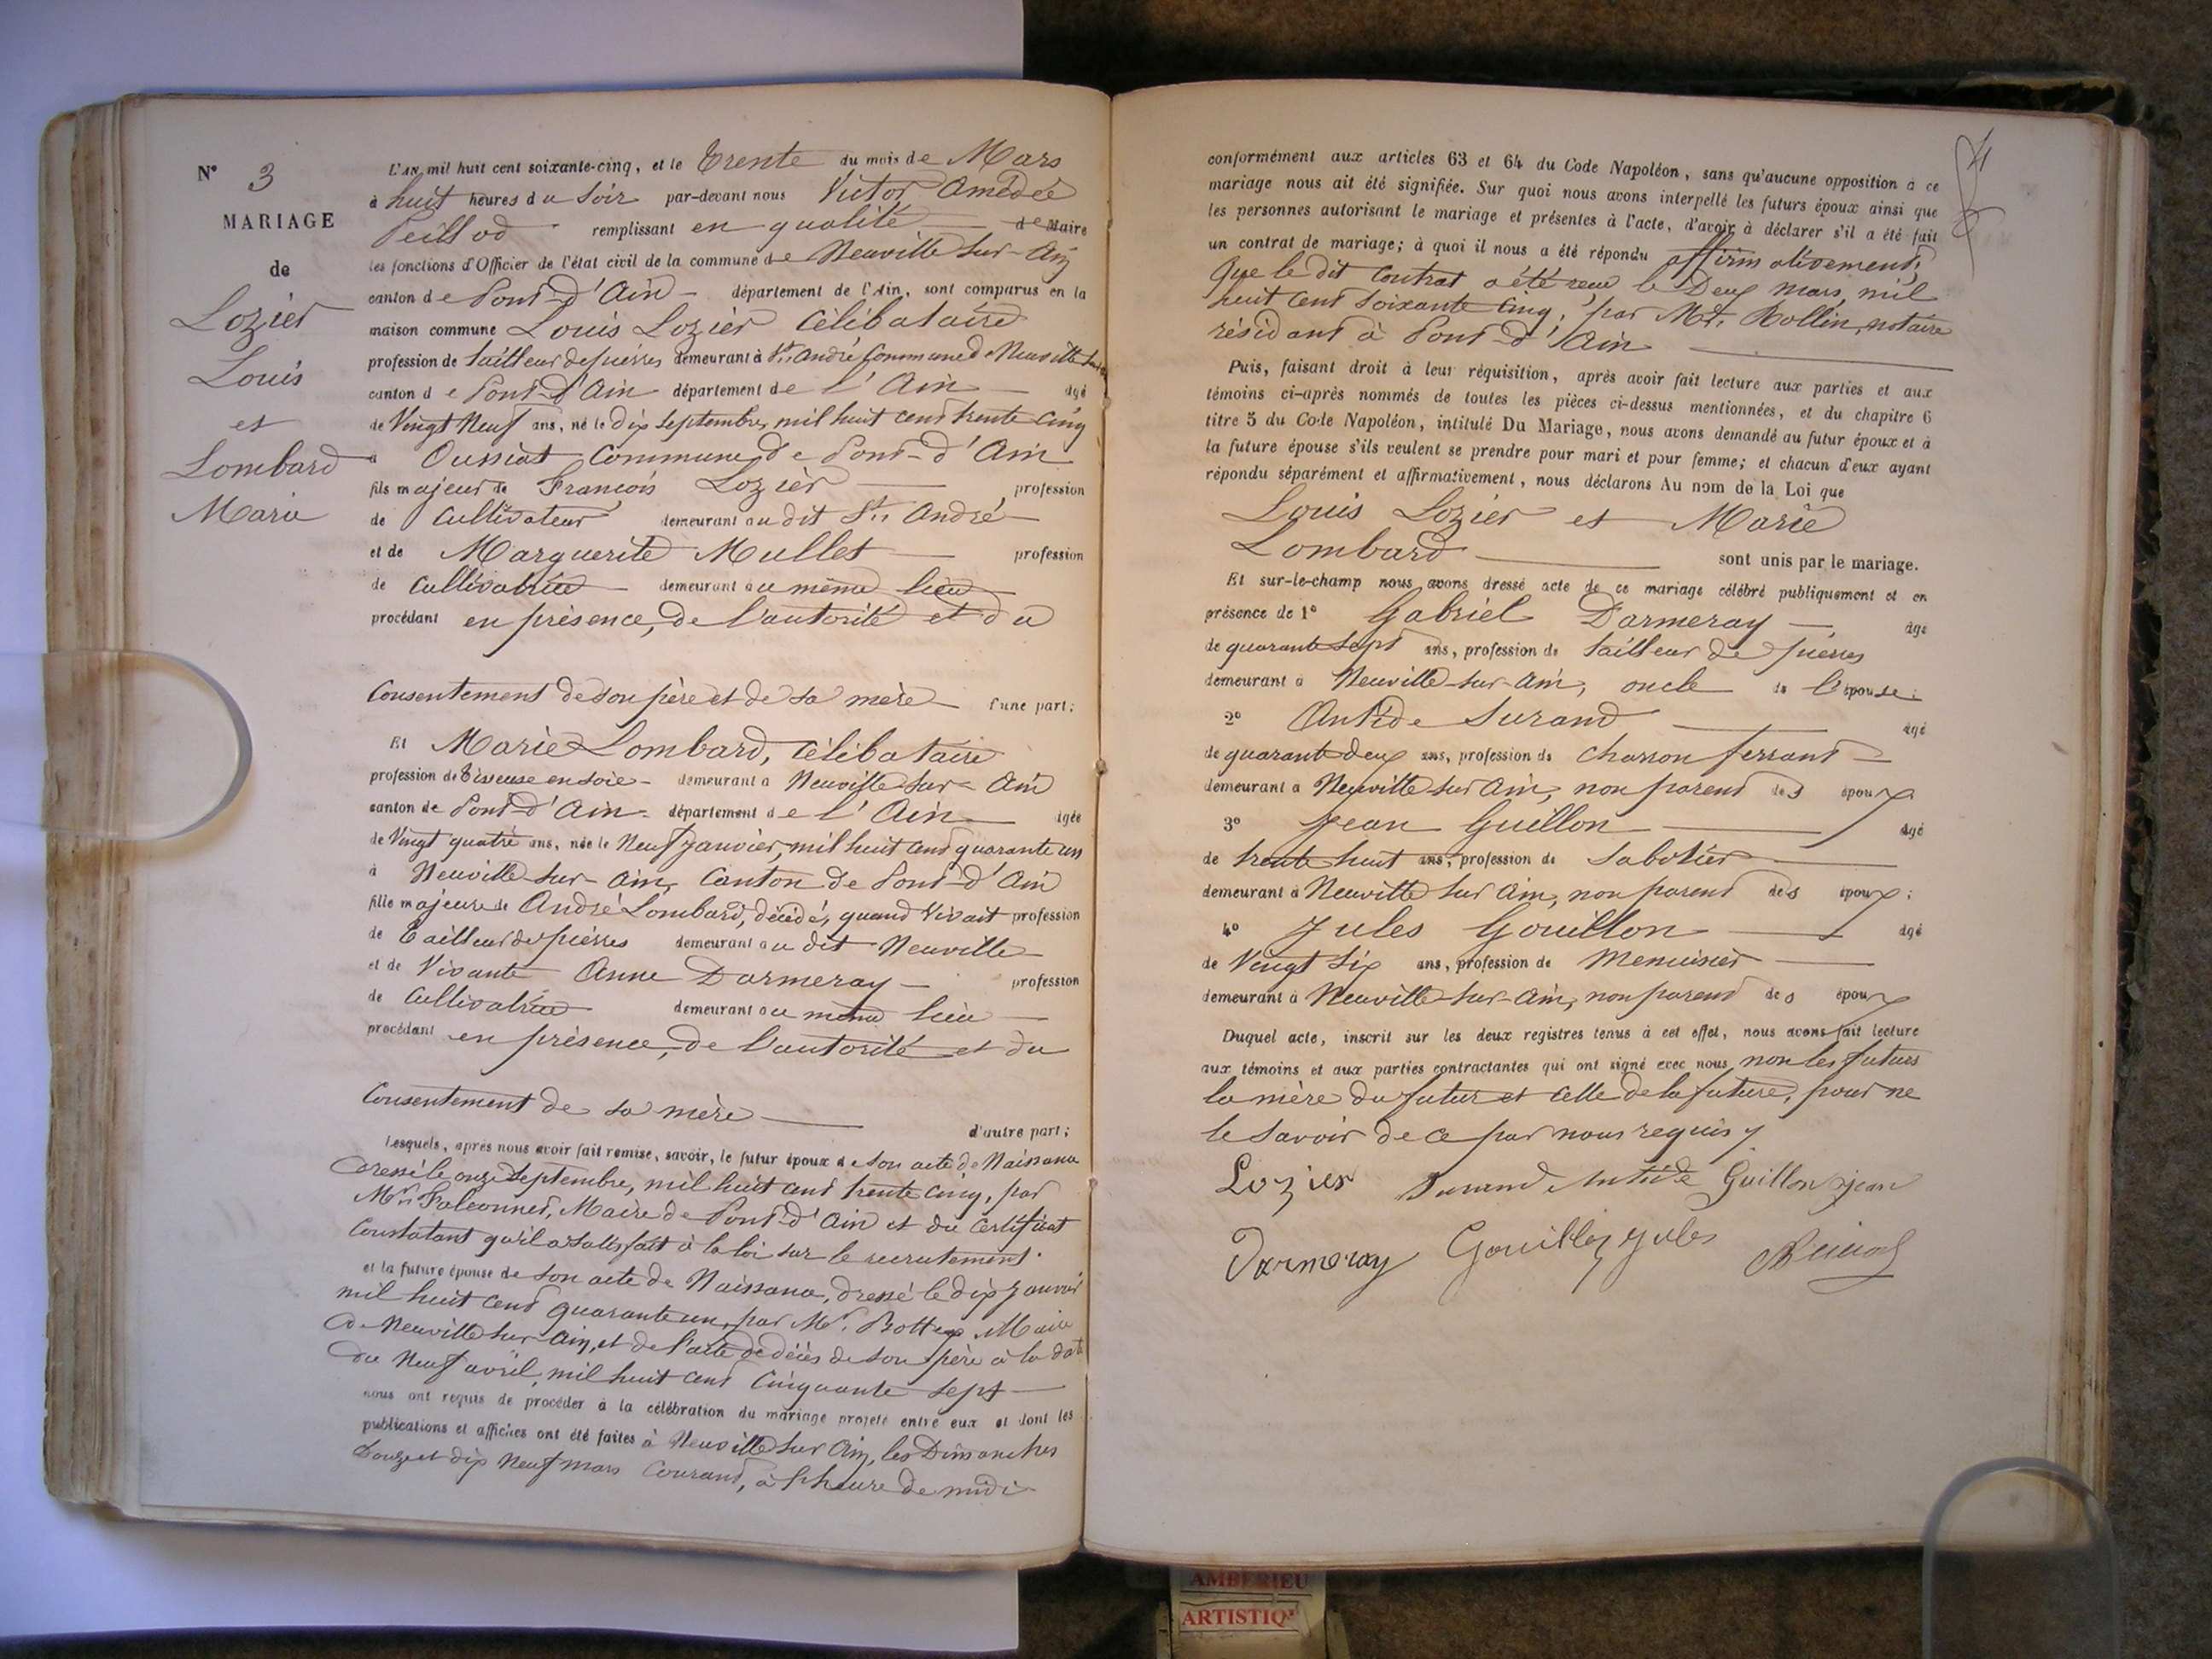 N° 3
MARIAGE
de
Lozier
Louis
et
Lombard
Marie
L'AN mil huit cent soixante-cinq, et le Trente du mois de Mars
à huit heures du Soir par-devant nous Victor Amédée
Peillod remplissant en qualité de Maire
les fonctions d'Officier de l'état civil de la commune de Neuville sur-Ain
canton de Pont-d'Ain département de l'Ain, sont comparus en la
maison commune Louis Lozier Célibataire
profession de tailleur de pierres demeurant à St. André Commune de Neuville sur
canton de Pont-d'Ain département de l'Ain âgé
de Vingt Neuf ans, né le Dix Septembre, mil huit cent trente Cinq
à Oussiat Commune de Pont-d'Ain
fils majeur de François Lozier profession
de Cultivateur demeurant au dit St. André
et de Marguerite Mullet profession
de Cultivatrice demeurant au même lieu
procédant en présence, de l'autorité et du
Consentement de son père et de sa mère d'une part;
Et Marie Lombard, Célibataire
profession de Tisseuse en soie demeurant à Neuville sur-Ain
canton de Pont-d'Ain département de l'Ain âgée
de Vingt quatre ans, née le Neuf Janvier, mil huit cent quarante un
à Neuville sur-Ain, Canton de Pont-d'Ain
fille majeure de André Lombard, décédé, quand Vivait profession
de Tailleur de pierres demeurant au dit Neuville
et de Vivante Anne Darmeray profession
de Cultivatrice demeurant au même lieu
procédant en présence, de l'autorité et du
Consentement de sa mère d'autre part;
Lesquels, après nous avoir fait remise, savoir, le futur époux de son acte de Naissance
dressé le onze Septembre, mil huit cent trente cinq, par
Mr. Falconnet, Maire de Pont-d'Ain et du Certificat
Constatant qu'il a satisfait à la loi sur le recrutement.
et la future épouse de son acte de Naissance, dressé le dix Janvier
mil huit cent quarante un, par Mr. Bottex Maire
de Neuville sur-Ain, et de l'acte de décès de son père à la date
du Neuf avril, mil huit cent Cinquante sept
nous ont requis de procéder à la célébration du mariage projeté entre eux et dont les
publications et affiches ont été faites à Neuville sur Ain, les Dimanches
Douze et dix Neuf mars Courant, à l'heure de midi
conformément aux articles 63 et 64 du Code Napoléon, sans qu'aucune opposition à ce
mariage nous ait été signifiée. Sur quoi nous avons interpellé les futurs époux ainsi que
les personnes autorisant le mariage et présentes à l'acte, d'avoir à déclarer s'il a été fait
un contrat de mariage; à quoi il nous a été répondu affirmativement,
que le dit Contrat a été reçu le Deux Mars, mil
huit cent soixante cinq, par Mt. Rollin, notaire
résidant à Pont-d'Ain
Puis, faisant droit à leur réquisition, après avoir fait lecture aux parties et aux
témoins ci-après nommés de toutes les pièces ci-dessus mentionnées, et du chapitre 6
titre 5 du Code Napoléon, intitulé Du Mariage, nous avons demandé au futur époux et à
la future épouse s'ils veulent se prendre pour mari et pour femme; et chacun d'eux ayant
répondu séparément et affirmativement, nous déclarons Au nom de la Loi que
Louis Lozier et Marie
Lombard sont unis par le mariage.
Et sur-le-champ nous avons dressé acte de ce mariage célébré publiquement et en
présence de 1° Gabriel Darmeray âgé
de quarante Sept ans, profession de tailleur de pierres
demeurant à Neuville sur-Ain, oncle de l'épouse;
2° Antide Durand âgé
de quarant deux ans, profession de Charron ferrant
demeurant à Neuville sur Ain, non parent des époux
3° Jean Guillon âgé
de trente huit ans, profession de Sabotier
demeurant à Neuville sur Ain, non parent des époux;
4° Jules Gouillon âgé
de Vingt Six ans, profession de Menuisier
demeurant à Neuville sur-Ain, non parent des époux
Duquel acte, inscrit sur les deux registres tenus à cet effet, nous avons fait lecture
aux témoins et aux parties contractantes qui ont signé avec nous, non les futurs
la mère du futur et celle de la future, pour ne
le savoir de ce par nous requis
Lozier Durand Antide Guillon jean
Darmeray Gouillon jules
AMBERIEU
ARTISTIQ